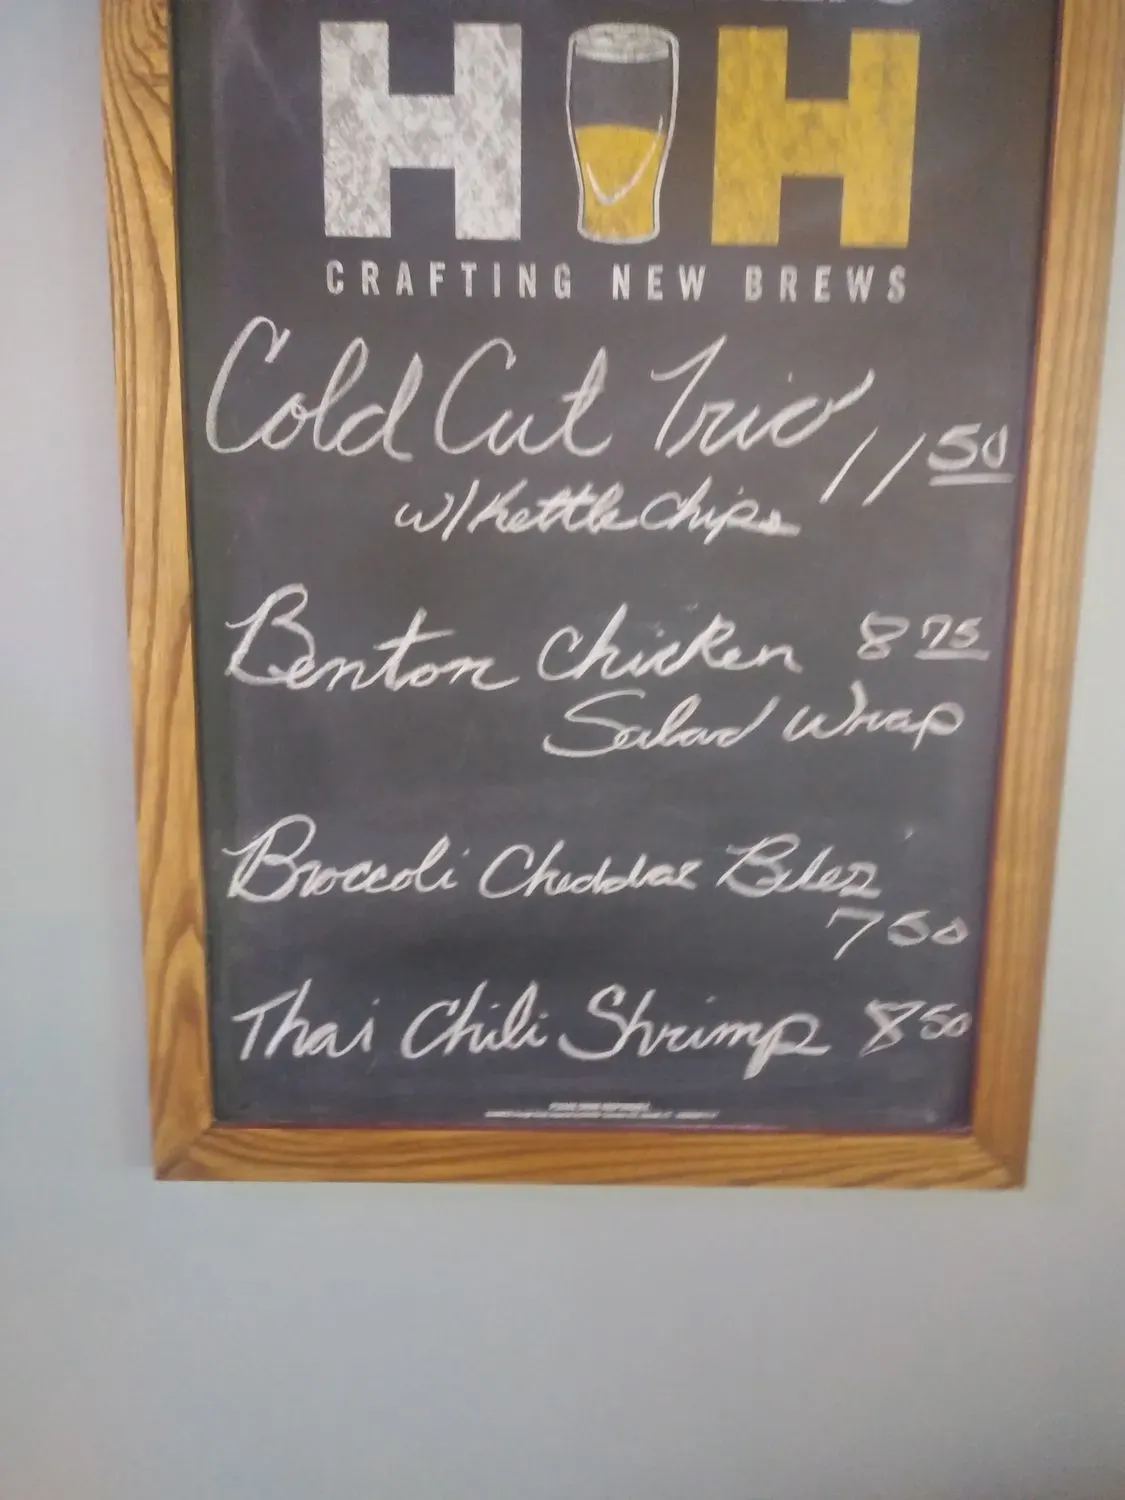 H H
CRAFTING NEW BREWS
Cold Cut Trio 11 50
w/ Kettle Chips
Benton Chicken 8 75
Salad Wrap
Broccoli Cheddar Bites
7 50
Thai Chili Shrimp 8 50